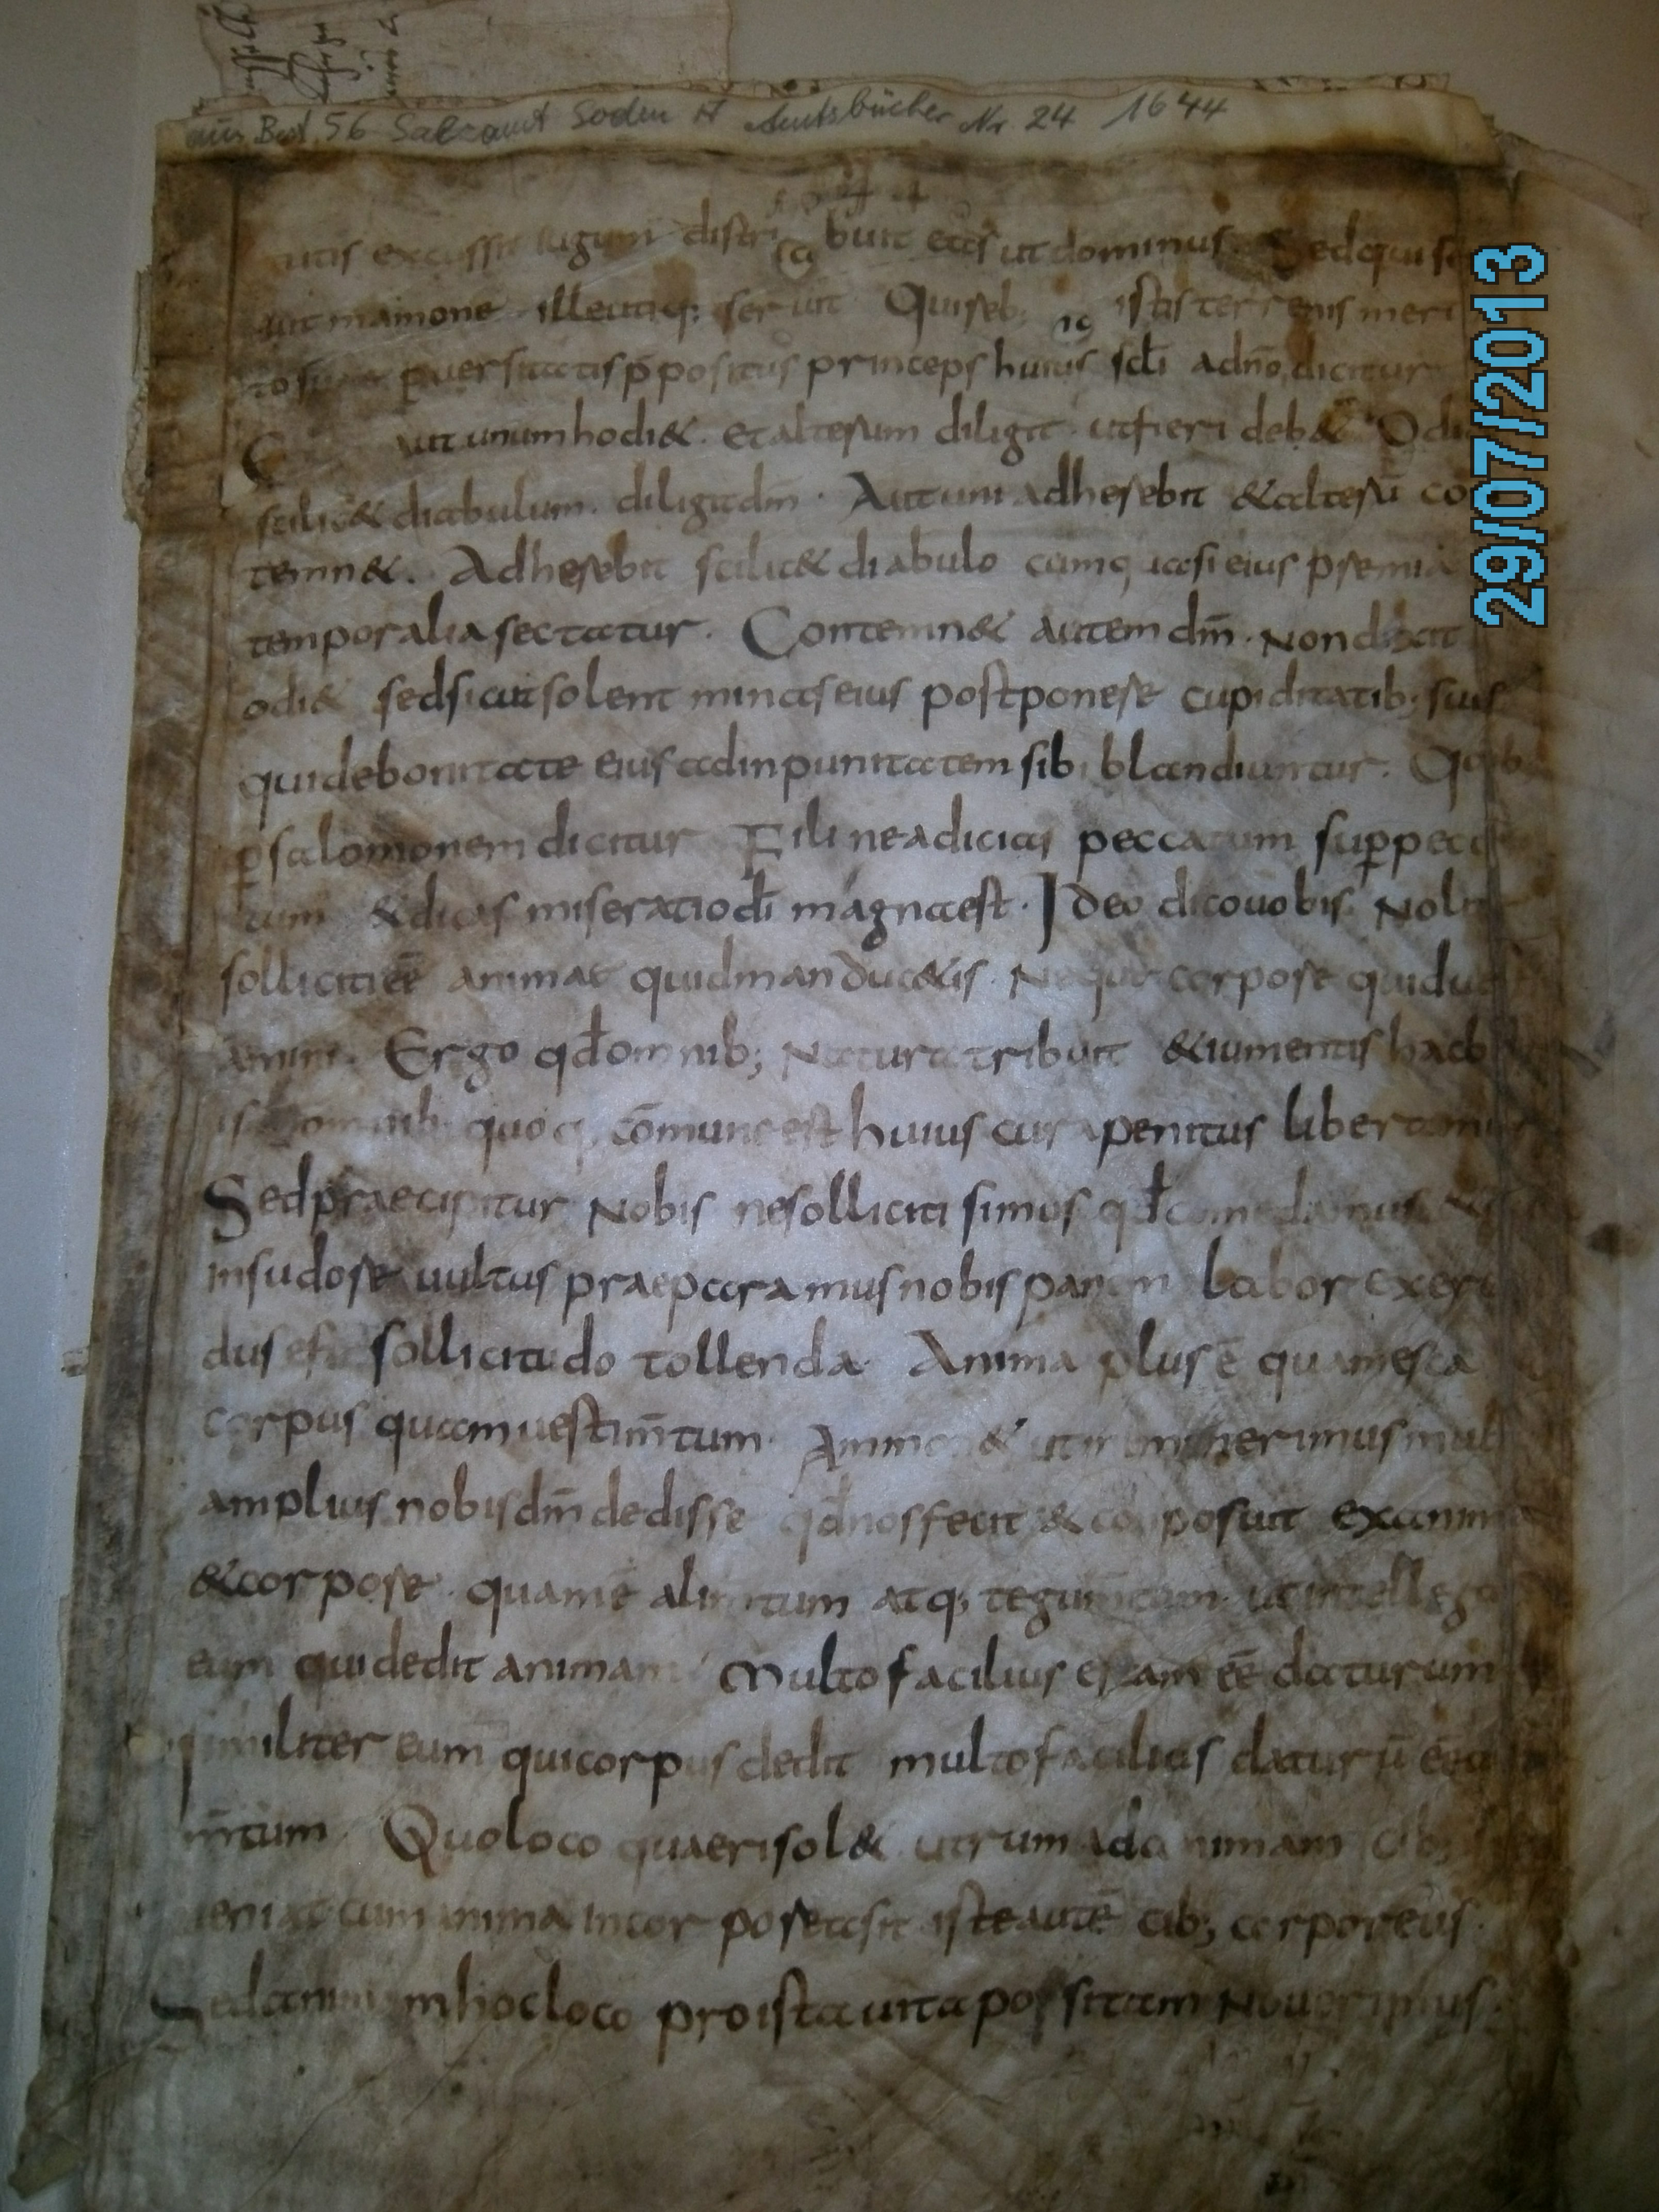 aus Best. 56 Salzamt Soden A Amtsbücher Nr. 24 1644
29/07/2013
excussit iugum distri buit eas ut dominus. Sed qui se
uit mamone illi utiq; seruit Qui reb; istis terrenis meri
to suae puersitatis p̄positus princeps huius scli adn̄o dicitur
aut unum hodi&. et alterum diligit ut fieri deb& Odi
scilic& diabulum. diligit dm̄. Aut uni adherebit & alterū co
temn&. Adherebit scilic& diabulo cum quasi eius premia
temporalia sectatur. Contemn& autem dm̄. Non dixit
odi& sed sicut solent minas eius postponere cupiditatib; suis
qui de bonitate eius ad inpunitatem sibi blandiuntur. Quib
p salomonem dicitur Fili ne adicias peccatum sup pecca
tum & dicas miseratio dī magna est. Ideo dico uobis. Noli
solliciti eē animae quid manduc&is. Neque corpore quid ue
amini. Ergo qd omnib; Natura tribuit & iumentis hac b
is omnib; quoq; cōmune est huius cura penitus liberamu
Sed praecipitur Nobis ne solliciti simus qd comedamus
in sudore uultus praeparamus nobis panem labor exer
dus est sollicitudo tollenda. Anima plus ē quam esca
corpus quam uestim̄tum. & ut in memerimus mul
amplius nobis dm̄ dedisse qd nos fecit & cō posuit ex anim
& corpore. quam ē alim̄tum atq; tegum̄tum. ut intellega
eum qui dedit animam Multo facilius escam eē daturum
similiter eum qui corpus dedit multo facilius daturū eē
m̄tum. Quo loco quaeri sol& utrum ad animam cib;
ueniat cum anima incorporea sit iste autē cib; corporeus.
Sed animam in hoc loco pro ista uita possitam Nouerimus.